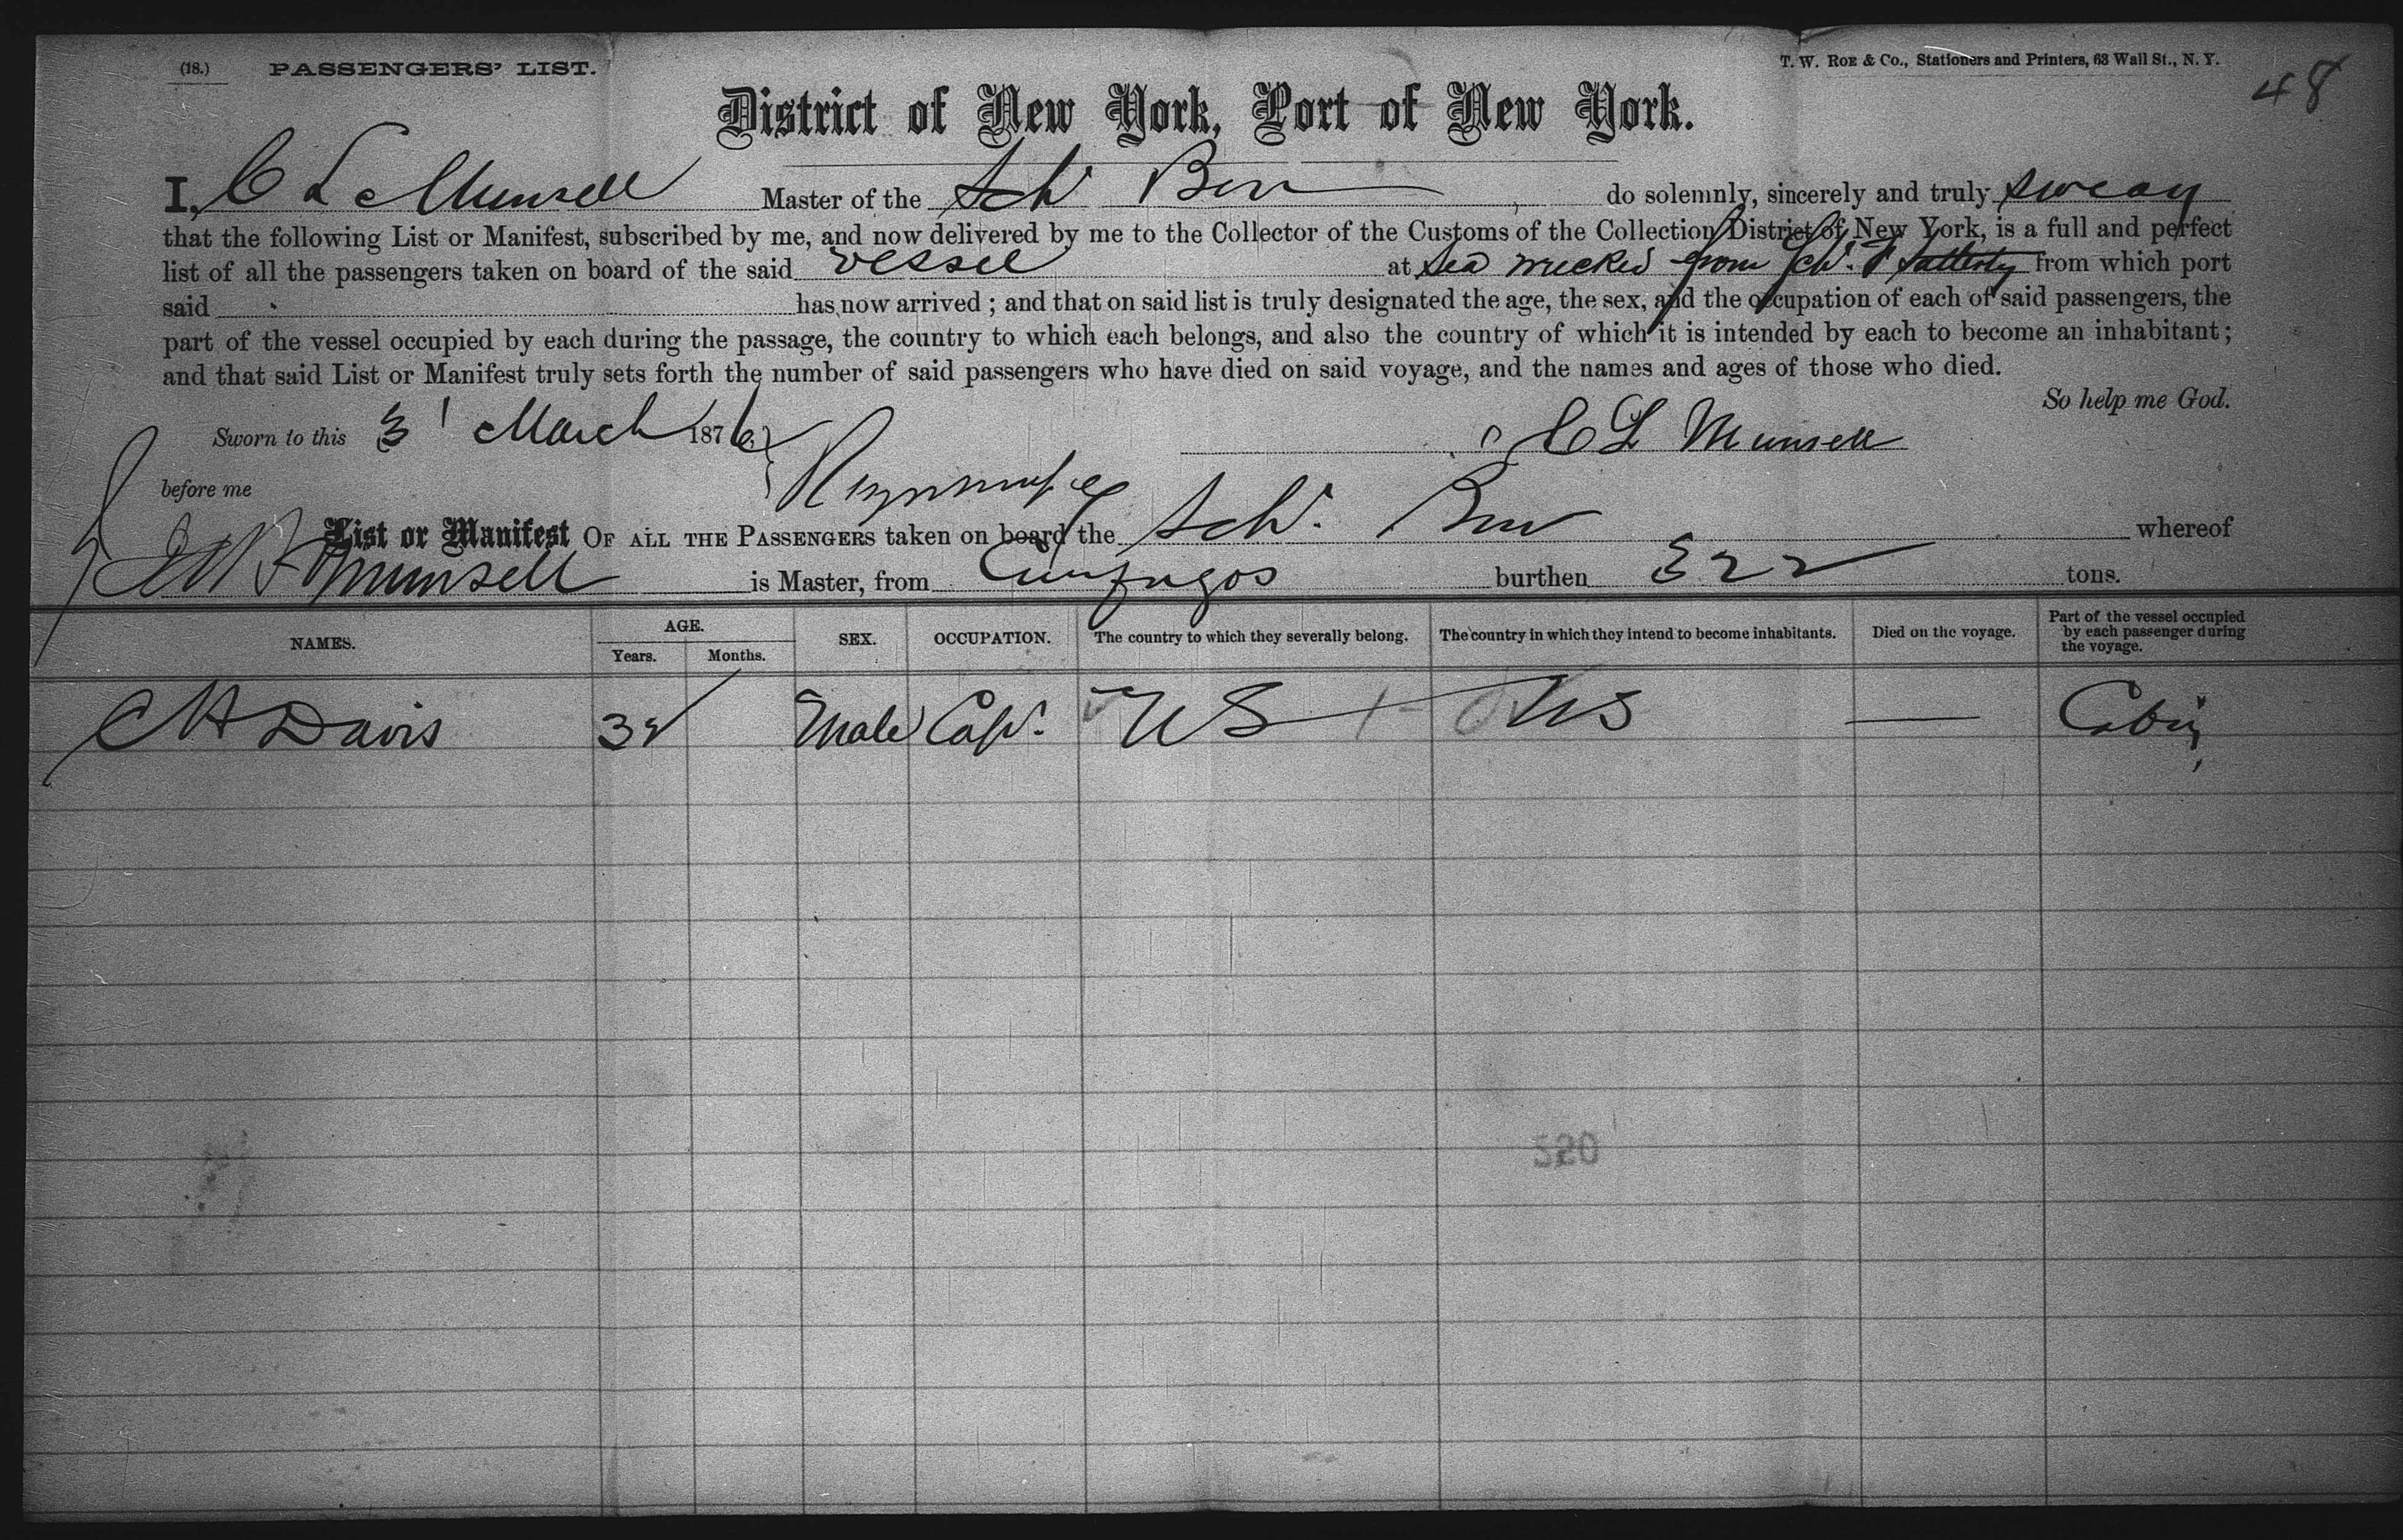 (18.) PASSENGERS' LIST.
T. W. ROE & Co., Stationers and Printers, 63 Wall St., N. Y.
48
District of New York, Port of New York.
I, C L Munsell Master of the Sch Ben , do solemnly, sincerely and truly swear
that the following List or Manifest, subscribed by me, and now delivered by me to the Collector of the Customs of the Collection District of New York, is a full and perfect
list of all the passengers taken on board of the said vessel at Sea wrecked from Sch. from which port
said has now arrived ; and that on said list is truly designated the age, the sex, and the occupation of each of said passengers, the
part of the vessel occupied by each during the passage, the country to which each belongs, and also the country of which it is intended by each to become an inhabitant ;
and that said List or Manifest truly sets forth the number of said passengers who have died on said voyage, and the names and ages of those who died.
So help me God.
Sworn to this 3 March 1876
C L Munsell
before me
List or Manifest OF ALL THE PASSENGERS taken on board the Sch. whereof
Munsell is Master, from burthen 322 tons.
NAMES.
AGE.
Years.
Months.
SEX.
OCCUPATION.
The country to which they severally belong.
The country in which they intend to become inhabitants.
Died on the voyage.
Part of the vessel occupied by each passenger during the voyage.
C H Davis Male Capt. US US — Cabin
520